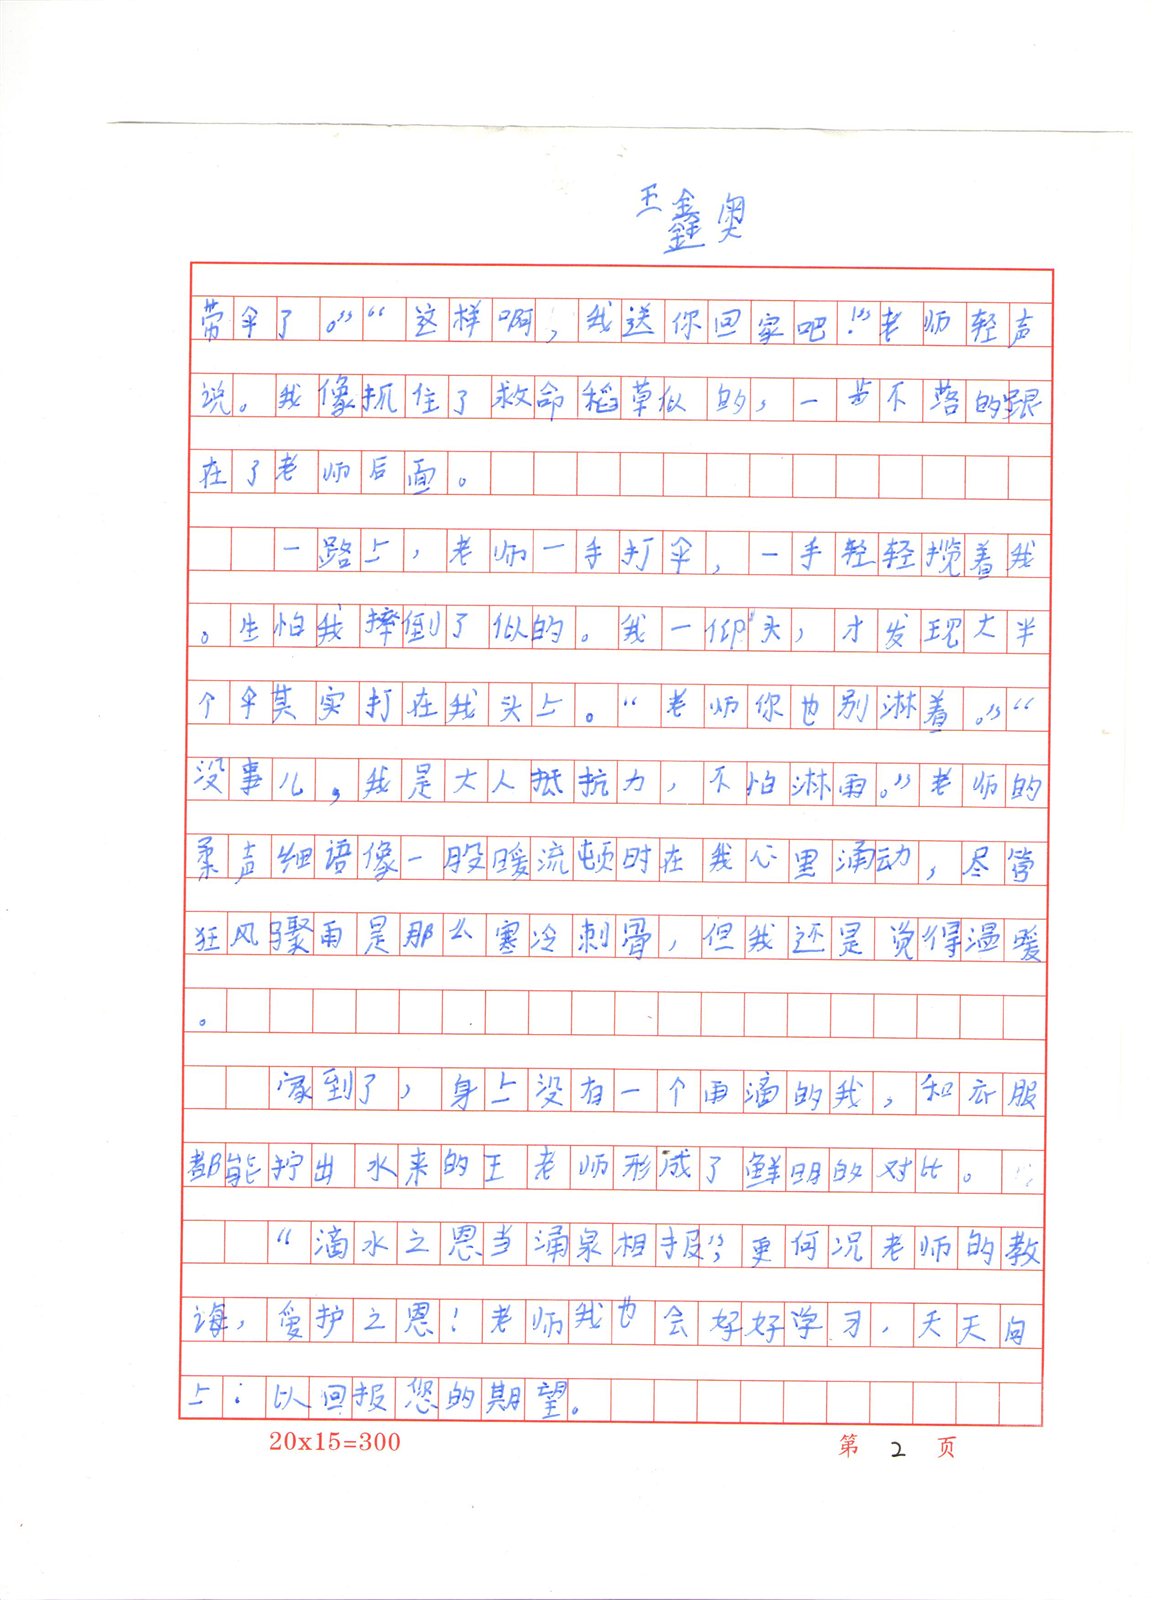 王鑫奥
带伞了。”“这样啊，我送你回家吧！”老师轻声
说。我像抓住了救命稻草似的，一步不落的跟
在了老师后面。
一路上，老师一手打伞，一手轻轻揽着我
。生怕我摔倒了似的。我一仰头，才发现大半
个伞其实打在我头上。“老师你也别淋着。”“
没事儿，我是大人抵抗力，不怕淋雨。”老师的
柔声细语像一股暖流顿时在我心里涌动，尽管
狂风骤雨是那么寒冷刺骨，但我还是觉得温暖
。
家到了，身上没有一个雨滴的我，和衣服
都能拧出水来的王老师形成了鲜明的对比。
“滴水之恩当涌泉相报”，更何况老师的教
诲，爱护之恩！老师我也会好好学习，天天向
上：以回报您的期望。
20x15=300
第 2 页